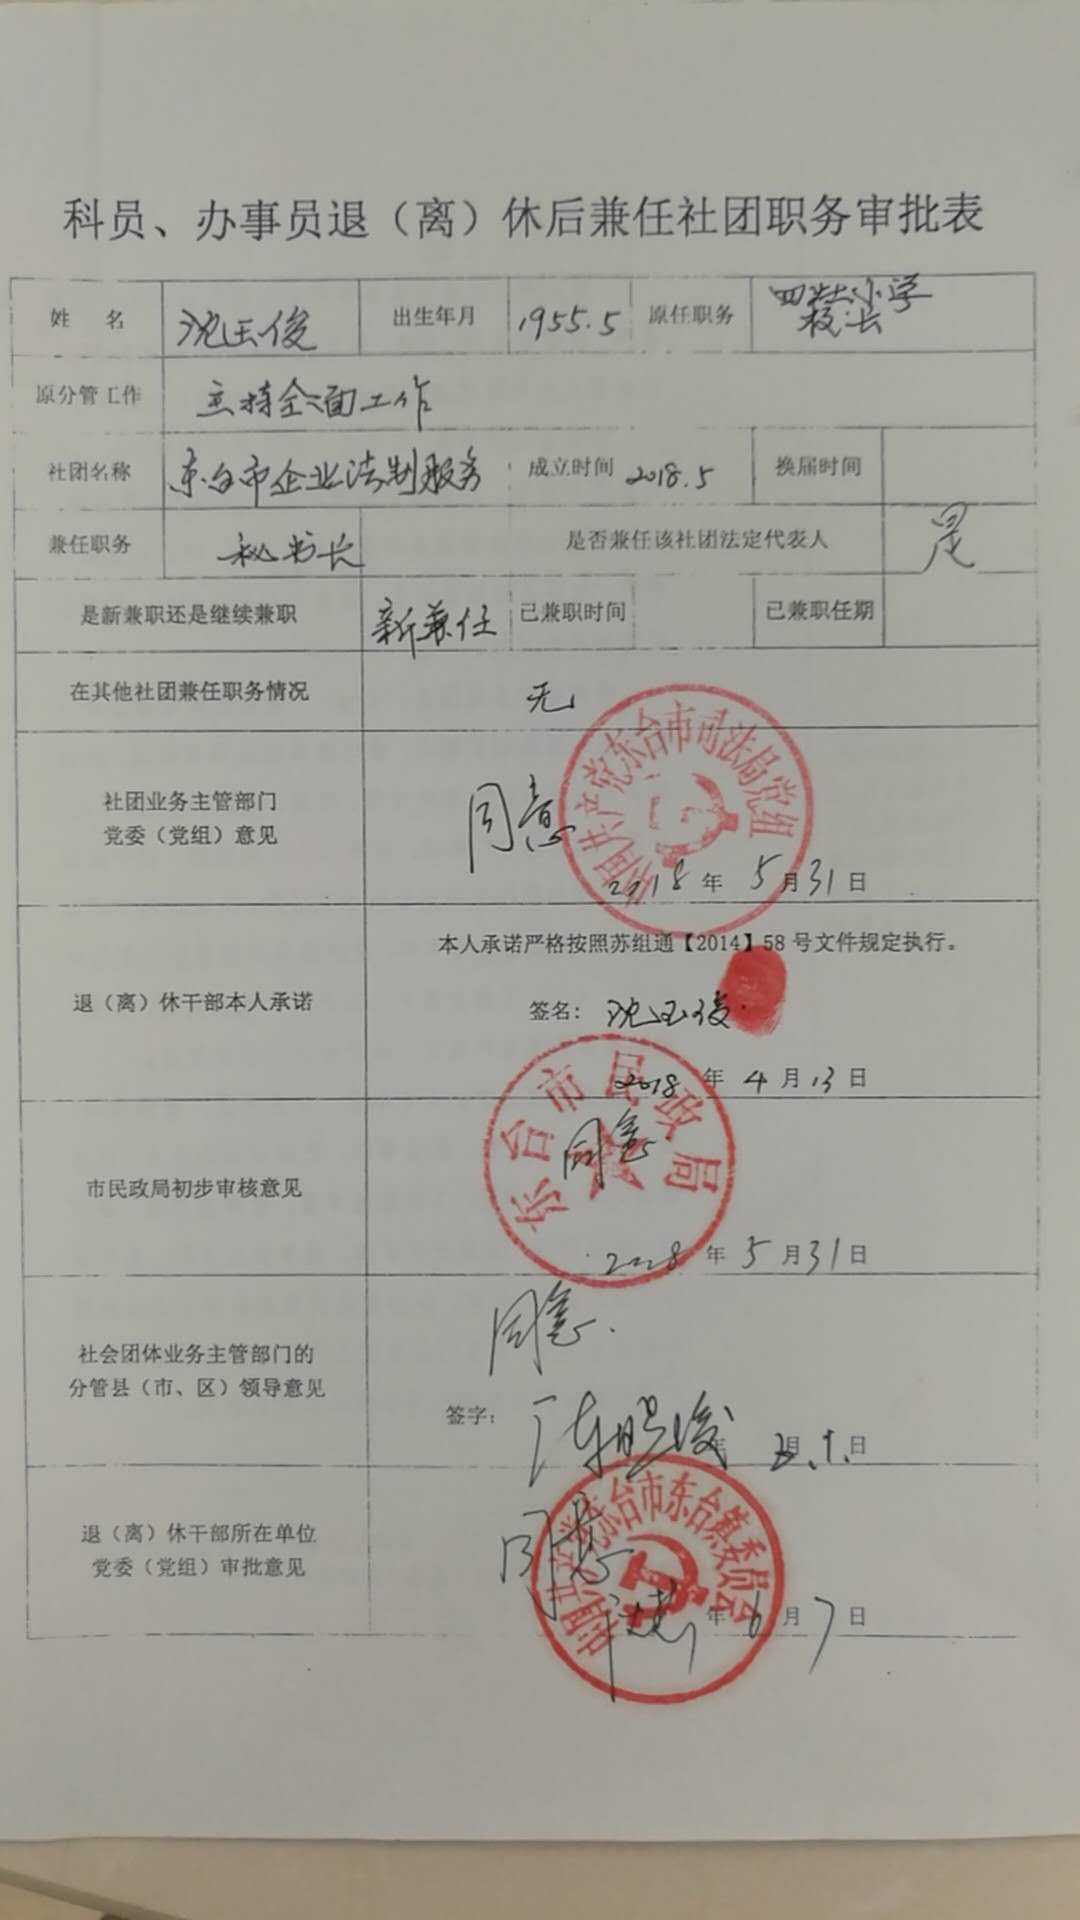 科员、办事员退（离）休后兼任社团职务审批表
姓 名 沈玉俊 出生年月 1955.5 原任职务 四灶小学
校长
原分管工作 主持全面工作
社团名称 东台市企业法制服务 成立时间 2018.5 换届时间
兼任职务 秘书长 是否兼任该社团法定代表人 是
是新兼职还是继续兼职 新兼任 已兼职时间 已兼职任期
在其他社团兼任职务情况 无
中国共产党东台市司法局党组
社团业务主管部门
党委（党组）意见
同意
2018年 5月31日
本人承诺严格按照苏组通【2014】58号文件规定执行。
退（离）休干部本人承诺
签名： 沈玉俊
2018年 4月13日
东台市民政局
市民政局初步审核意见
同意
2018年 5月31日
同意.
社会团体业务主管部门的
分管县（市、区）领导意见
签字：
年 月 日
中国共产党东台市东台镇委员会
退（离）休干部所在单位
党委（党组）审批意见
同意
年 6月 7日